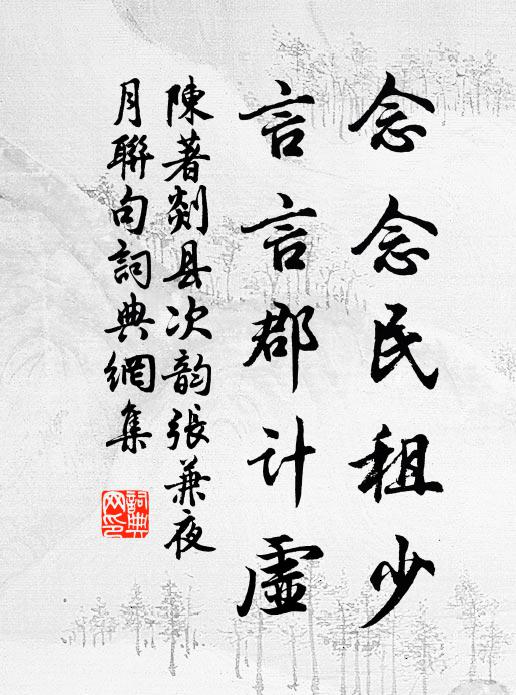 念念民租少
言言郡计虛
陳著剡县次韵張蒹夜
月聯句詞典網集
詞典网印